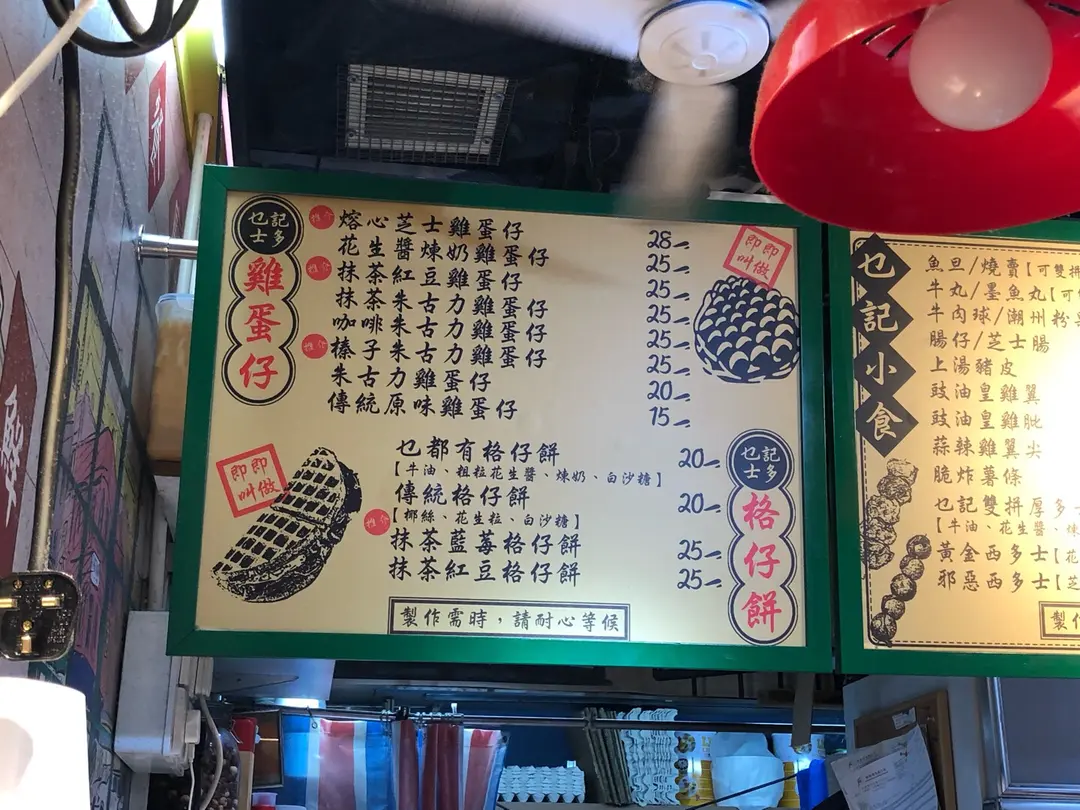 乜記
士多
雞蛋仔
推介
熔心芝士雞蛋仔 28-
花生醬煉奶雞蛋仔 25-
推介
抹茶紅豆雞蛋仔 25-
抹茶朱古力雞蛋仔 25-
咖啡朱古力雞蛋仔 25-
推介
榛子朱古力雞蛋仔 25-
朱古力雞蛋仔 20-
傳統原味雞蛋仔 15-
即叫
即做
即叫
即做
乜都有格仔餅 20-
【牛油、粗粒花生醬、煉奶、白沙糖】
傳統格仔餅 20-
【椰絲、花生粒、白沙糖】
推介
抹茶藍莓格仔餅 25-
抹茶紅豆格仔餅 25-
乜記
士多
格仔餅
製作需時，請耐心等候
乜記小食
魚旦/燒賣【可雙拼
牛丸/墨魚丸【可
牛肉球/潮州粉
腸仔/芝士腸
上湯豬皮
豉油皇雞翼
豉油皇雞肶
蒜辣雞翼尖
脆炸薯條
乜記雙拼厚多
【牛油、花生醬、煉
黃金西多士【花
邪惡西多士【芝
製作